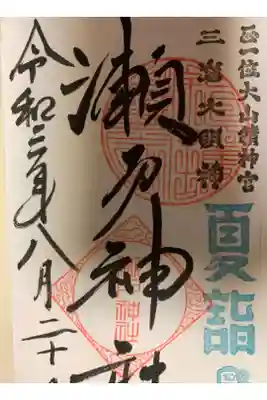 正一位大山積神宮
三嶋大明神
夏詣
瀬戸神社
令和三年八月二十